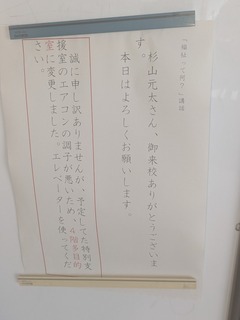 「福祉って何？」講話
杉山元太さん、御来校ありがとうございま
す。
本日はよろしくお願いします。
誠に申し訳ありませんが、予定してた特別支
援室のエアコンの調子が悪いため、4階多目的
室に変更しました。エレベーターを使ってくだ
さい。